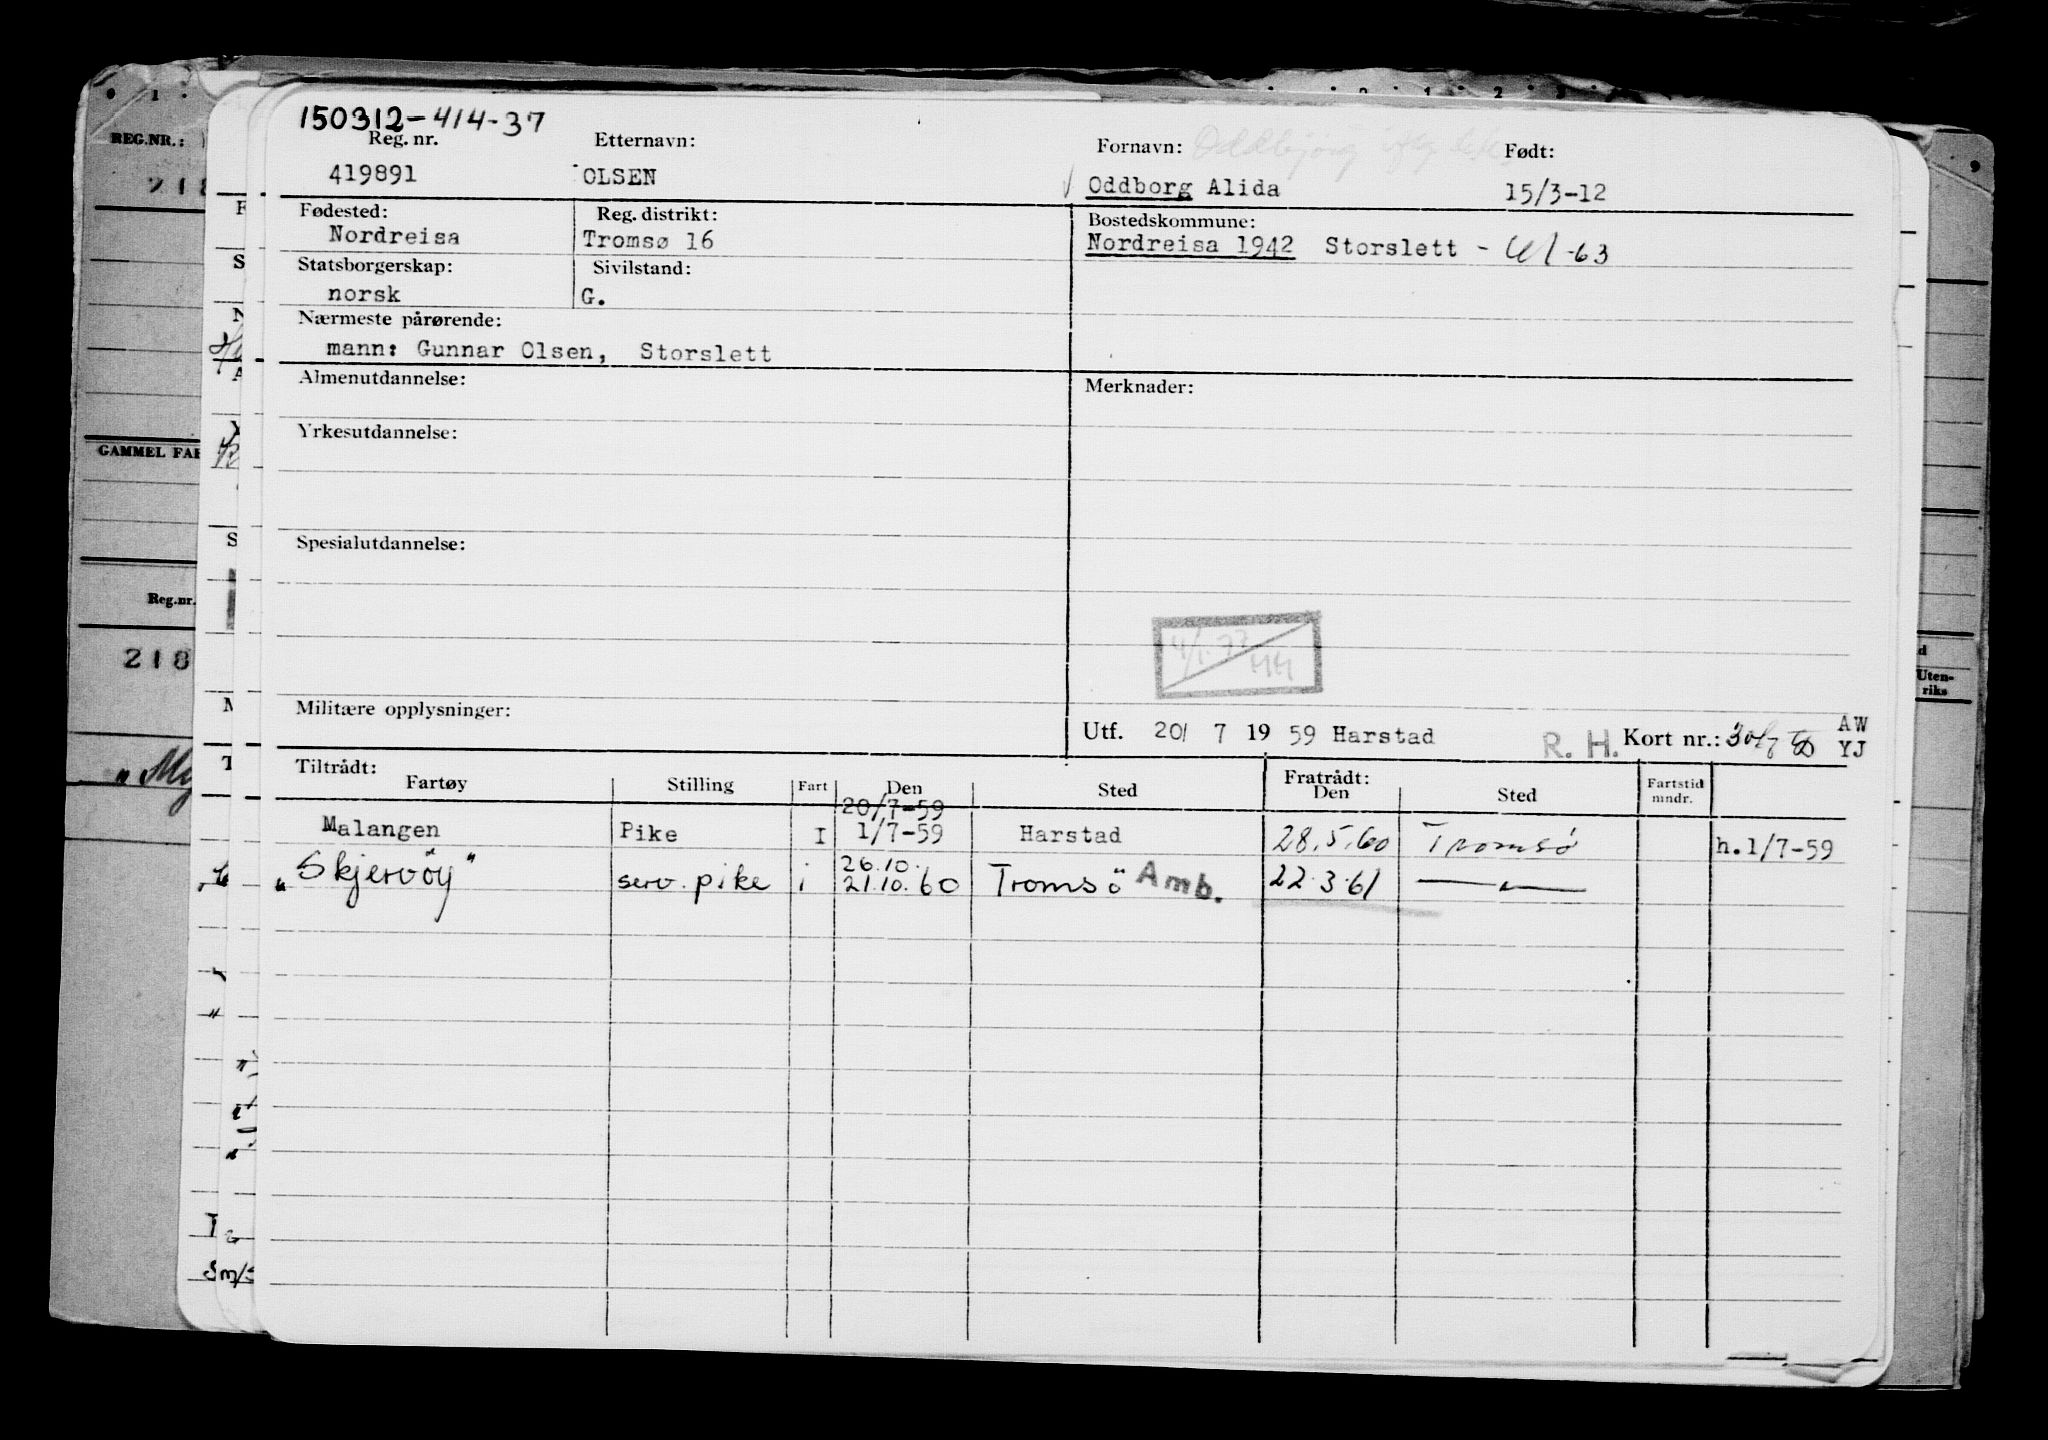 150312-414-37
Reg. nr. Etternavn: Fornavn: Født:
419891 OLSEN Oddborg Alida 15/3-12
Fødested: Reg. distrikt: Bostedskommune:
Nordreisa Tromsø 16 Nordreisa 1942 Storslett - -63
Statsborgerskap: Sivilstand:
norsk G.
Nærmeste pårørende:
mann: Gunnar Olsen, Storslett
Almenutdannelse: Merknader:
Yrkesutdannelse:
Spesialutdannelse:
4/1.77
Militære opplysninger:
Utf. 20/ 7 19 59 Harstad R. H. Kort nr.: AW
YJ
Tiltrådt: Fratrådt:
Fartøy Stilling Fart Den Sted Den Sted Fartstid mndr.
20/7-59
Malangen Pike I 1/7-59 Harstad 28.5.60 Tromsö h.1/7-59
26.10.
"Skjervöy" serv. pike i 21.10.60 Tromsö Amb. 22.3.61 — " —
REG.NR.:
218
GAMMEL FAR
Reg.nr.
218
Uten-
riks